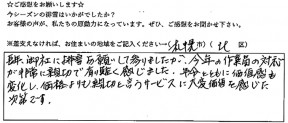 ☆ご感想をお願いします☆
今シーズンの排雪はいかがでしたか?
お客様の声が、私たちの原動力になっています。ぜひ、ご感想をお聞かせ下さい。
※差支えなければ、お住まいの地域をご記入ください→(札幌市)(北 区)
長年、御社に排雪お願いして参りましたが、今年の作業員の対応
が非常に親切で有り難く感じました。年令とともに価値感も
変化し、価格よりも親切と言うサービスに大変価値を感じた
次第です。